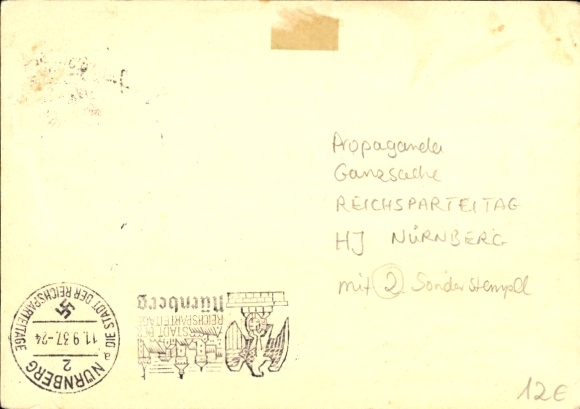 Propaganda
Ganzsache
REICHSPARTEITAG
HJ NÜRNBERG
mit 2 Sonderstempel
12€
NÜRNBERG
2
a
11.9.37.-24
DIE STADT DER REICHSPARTEITAGE
DIE STADT DER
REICHSPARTEITAGE
Nürnberg